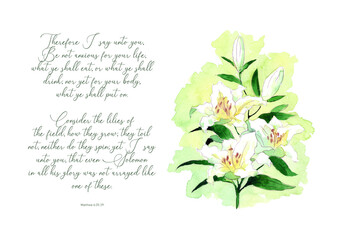 Therefore I say unto you,
Be not anxious for your life,
what ye shall eat, or what ye shall
drink; nor yet for your body,
what ye shall put on.
Consider the lilies of
the field, how they grow; they toil
not, neither do they spin; yet I say
unto you, that even Solomon
in all his glory was not arrayed like
one of these.